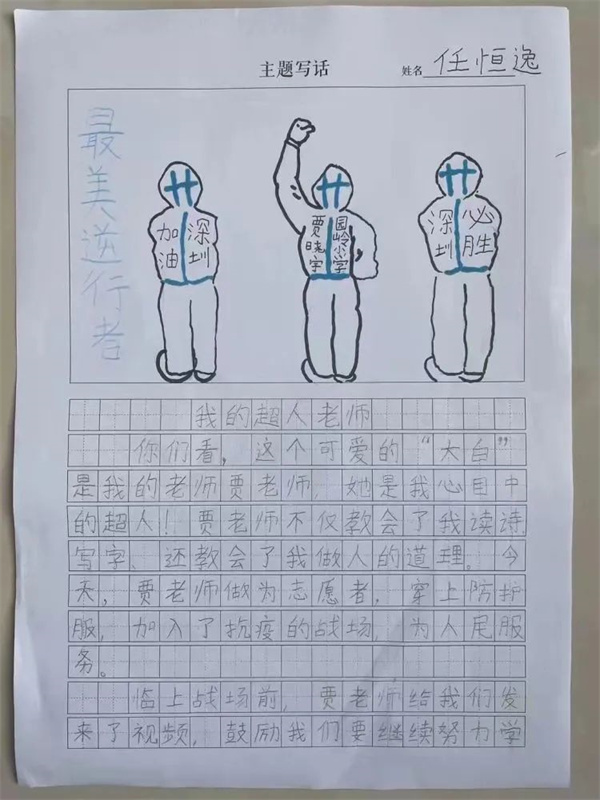 主题写话
姓名 任恒逸
最美逆行者
深圳
加油
园岭小学
贾晓宇
必胜
深圳
我的超人老师
你们看，这个可爱的“大白”
是我的老师贾老师，她是我心目中
的超人！贾老师不仅教会了我读诗、
写字、还教会了我做人的道理。今
天，贾老师做为志愿者，穿上防护
服，加入了抗疫的战场，为人尾服
务。
临上战场前，贾老师给我们发
来了视频，鼓励我们要继续努力学